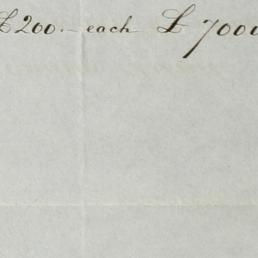 £200.– each £ 7000